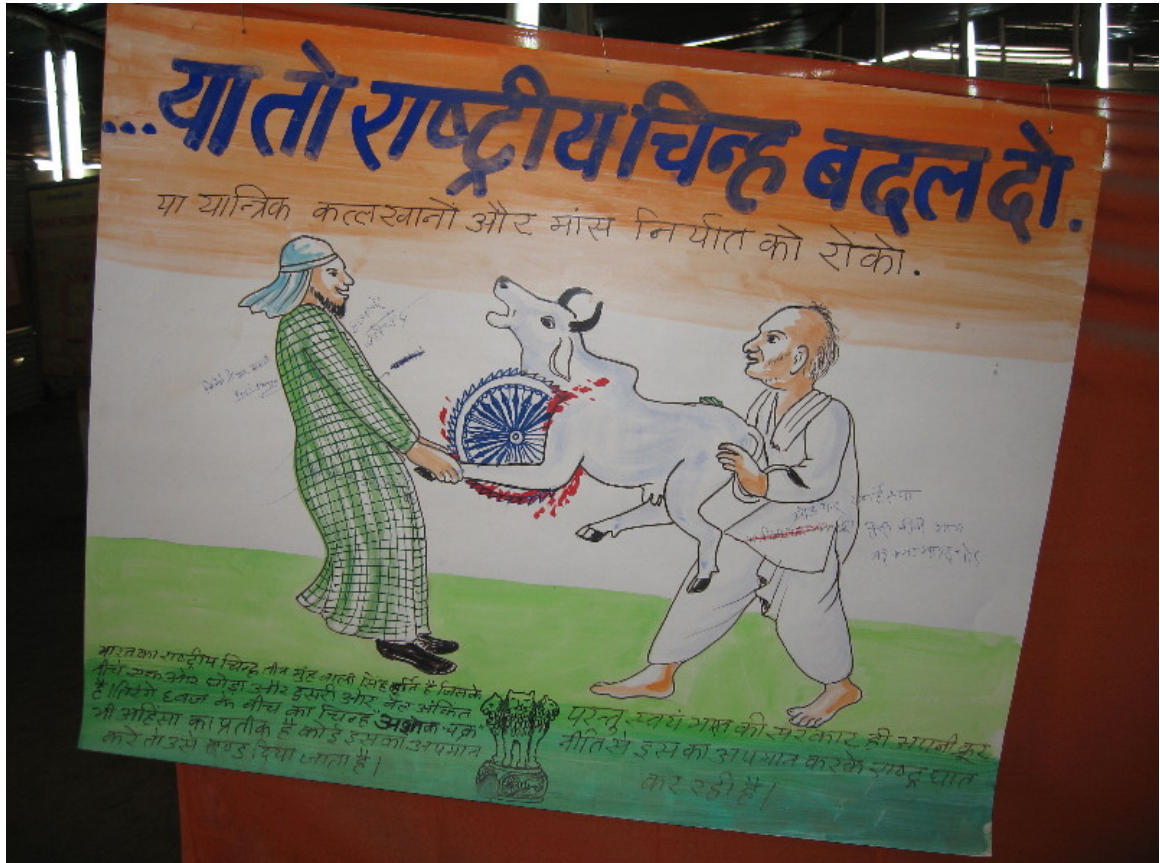 ...या तो राष्ट्रीय चिन्ह बदल दो.
या यान्त्रिक कत्लखानों और मांस निर्यात को रोको.
भारत का राष्ट्रीय चिन्ह तीन मुंह वाली सिंह मूर्ति है जिसके
नीचे एक ओर घोड़ा और दूसरी ओर बैल अंकित
है। तिरंगे ध्वज के बीच का चिन्ह अशोक चक्र
भी अहिंसा का प्रतीक है कोई इसका अपमान
करे तो उसे दण्ड दिया जाता है।
परन्तु स्वयं भारत की सरकार ही अपनी क्रूर
नीति से इस का अपमान करके राष्ट्र घात
कर रही है।